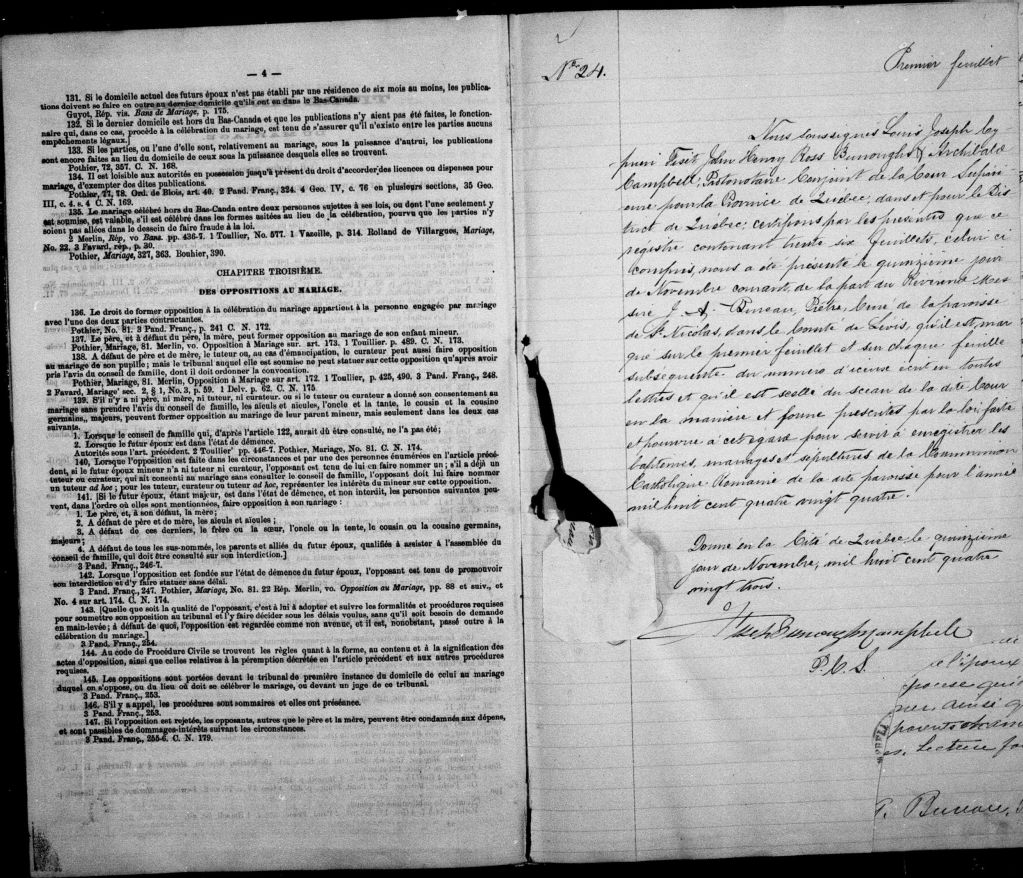 — 4 —
131. Si le domicile actuel des futurs époux n'est pas établi par une résidence de six mois au moins, les publica-
tions doivent se faire en outre au dernier domicile qu'ils ont eu dans le Bas-Canada.
Guyot, Rép. vis. Bans de Mariage, p. 175.
132. Si le dernier domicile est hors du Bas-Canada et que les publications n'y aient pas été faites, le fonction-
naire qui, dans ce cas, procède à la célébration du mariage, est tenu de s'assurer qu'il n'existe entre les parties aucuns
empêchements légaux.]
133. Si les parties, ou l'une d'elle sont, relativement au mariage, sous la puissance d'autrui, les publications
sont encore faites au lieu du domicile de ceux sous la puissance desquels elles se trouvent.
Pothier, 72, 357. C. N. 168.
134. Il est loisible aux autorités en possession jusqu'à présent du droit d'accorder des licences ou dispenses pour
mariage, d'exempter des dites publications.
Pothier, 77, 78. Ord. de Blois, art. 40. 2 Pand. Franç., 324. 4 Geo. IV, c. 76 en plusieurs sections, 35 Geo.
III, c. 4. s. 4 C. N. 169.
135. Le mariage célébré hors du Bas-Canda entre deux personnes sujettes à ses lois, ou dont l'une seulement y
est soumise, est valable, s'il est célébré dans les formes usitées au lieu de la célébration, pourvu que les parties n'y
soient pas allées dans le dessein de faire fraude à la loi.
2 Merlin, Rép, vo Bans. pp. 436-7. 1 Toullier, No. 577. 1 Vazeille, p. 314. Rolland de Villargues, Mariage,
No. 22. 3 Favard, rép., p. 30.
Pothier, Mariage, 327, 363. Bouhier, 390.
CHAPITRE TROISIÈME.
DES OPPOSITIONS AU MARIAGE.
136. Le droit de former opposition à la célébration du mariage appartient à la personne engagée par mariage
avec l'une des deux parties contractantes.
Pothier, No. 81. 3 Pand. Franç., p. 241 C. N. 172.
137. Le père, et à défaut du père, la mère, peut former opposition au mariage de son enfant mineur.
Pothier, Mariage, 81. Merlin, vo. Opposition à Mariage sur. art. 173. 1 Touillier. p. 489. C. N. 173.
138. A défaut de père et de mère, le tuteur ou, au cas d'émancipation, le curateur peut aussi faire opposition
au mariage de son pupille; mais le tribunal auquel elle est soumise ne peut statuer sur cette opposition qu'après avoir
pris l'avis du conseil de famille, dont il doit ordonner la convocation.
Pothier, Mariage, 81. Merlin, Opposition à Mariage sur art. 172. 1 Toullier, p. 425, 490. 3 Pand. Franç., 248.
2 Favard, Mariage sec. 2. § 1, No. 3, p. 59. 1 Delv. p. 62. C. N. 175.
139. S'il n'y a ni père, ni mère, ni tuteur, ni curateur. ou si le tuteur ou curateur a donné son consentement au
mariage sans prendre l'avis du conseil de famille, les aïeuls et aïeules, l'oncle et la tante, le cousin et la cousine
germains, majeurs, peuvent former opposition au mariage de leur parent mineur, mais seulement dans les deux cas
suivants.
1. Lorsque le conseil de famille qui, d'après l'article 122, aurait dû être consulté, ne l'a pas été;
2. Lorsque le futur époux est dans l'état de démence.
Autorités sous l'art. précédent. 2 Toullier' pp. 446-7. Pothier, Mariage, No. 81. C. N. 174.
140. Lorsque l'opposition est faite dans les circonstances et par une des personnes énumérées en l'article précé-
dent, si le futur époux mineur n'a ni tuteur ni curateur, l'opposant est tenu de lui en faire nommer un; s'il a déjà un
tuteur ou curateur, qui ait consenti au mariage sans consulter le conseil de famille, l'opposant doit lui faire nommer
un tuteur ad hoc; pour les tuteur, curateur ou tuteur ad hoc, représenter les intérêts du mineur sur cette opposition.
141. [Si le futur époux, étant majeur, est dans l'état de démence, et non interdit, les personnes suivantes peu-
vent, dans l'ordre où elles sont mentionnées, faire opposition à son mariage:
1. Le père, et, à son défaut, la mère;
2. A défaut de père et de mère, les aïeuls et aïeules;
3. A défaut de ces derniers, le frère ou la sœur, l'oncle ou la tente, le cousin ou la cousine germains,
majeurs;
4. A défaut de tous les sus-nommés, les parents et alliés du futur époux, qualifiés à assister à l'assemblée du
conseil de famille, qui doit être consulté sur son interdiction.]
3 Pand. Franç., 246-7.
142. Lorsque l'opposition est fondée sur l'état de démence du futur époux, l'opposant est tenu de promouvoir
son interdiction et d'y faire statuer sans délai.
3 Pand. Franç., 247. Pothier, Mariage, No. 81. 22 Rép. Merlin, vo. Opposition au Mariage, pp. 88 et suiv., et
No. 4 sur art. 174. C. N. 174.
143. [Quelque soit la qualité de l'opposant, c'est à lui à adopter et suivre les formalités et procédures requises
pour soumettre son opposition au tribunal et l'y faire décider sous les délais voulus, sans qu'il soit besoin de demande
en main-levée; à défaut de quoi, l'opposition est regardée comme non avenue, et il est, nonobstant, passé outre à la
célébration du mariage.]
3 Pand. Franç., 254.
144. Au code de Procédure Civile se trouvent les règles quant à la forme, au contenu et à la signification des
actes d'opposition, ainsi que celles relatives à la péremption décrétée en l'article précédent et aux autres procédures
requises.
145. Les oppositions sont portées devant le tribunal de première instance du domicile de celui au mariage
duquel on s'oppose, ou du lieu où doit se célébrer le mariage, ou devant un juge de ce tribunal.
3 Pand. Franç., 253.
146. S'il y a appel, les procédures sont sommaires et elles ont préséance.
3 Pand. Franç., 253.
147. Si l'opposition est rejetée, les opposants, autres que le père et la mère, peuvent être condamnés aux dépens,
et sont passibles de dommages-intérêts suivant les circonstances.
3 Pand. Franç., 255-6. C. N. 179.
No. 24.
Premier feuillet
Nous soussignés Louis Joseph Cy
prien Fiset, John Henry Ross Burroughs & Archibald
Campbell, Protonotaire Conjoint de la Cour Supéri
eure pour la Province de Québec, dans et pour le Dis
trict de Québec, certifions par les présentes que ce
registre contenant trente six feuillets, celui ci
compris, nous a été présenté le quinzième jour
de Novembre courant, de la part du Révérend Mes
sire J. A. Bureau, Prêtre, Curé de la paroisse
de St. Nicolas, dans le Comté de Lévis, qu'il est, mar
qué sur le premier feuillet et sur chaque feuille
subséquente du numéro d'iceux écrit en toutes
lettres et qu'il est scellé du sceau de la dite Cour
en la manière et forme prescrites par la loi faite
et pourvue à cet égard pour servir à enregistrer les
baptêmes, mariages et sépultures de la Communion
Catholique Romaine de la dite paroisse pour l'année
mil huit cent quatre vingt quatre.
Donné en la Cité de Québec, le quinzième
jour de Novembre, mil huit cent quatre
vingt trois.
Campbell
P. C. S.
e l'époux
pouse qui
ainsi q
parents
es. Lecture fa
Bureau,